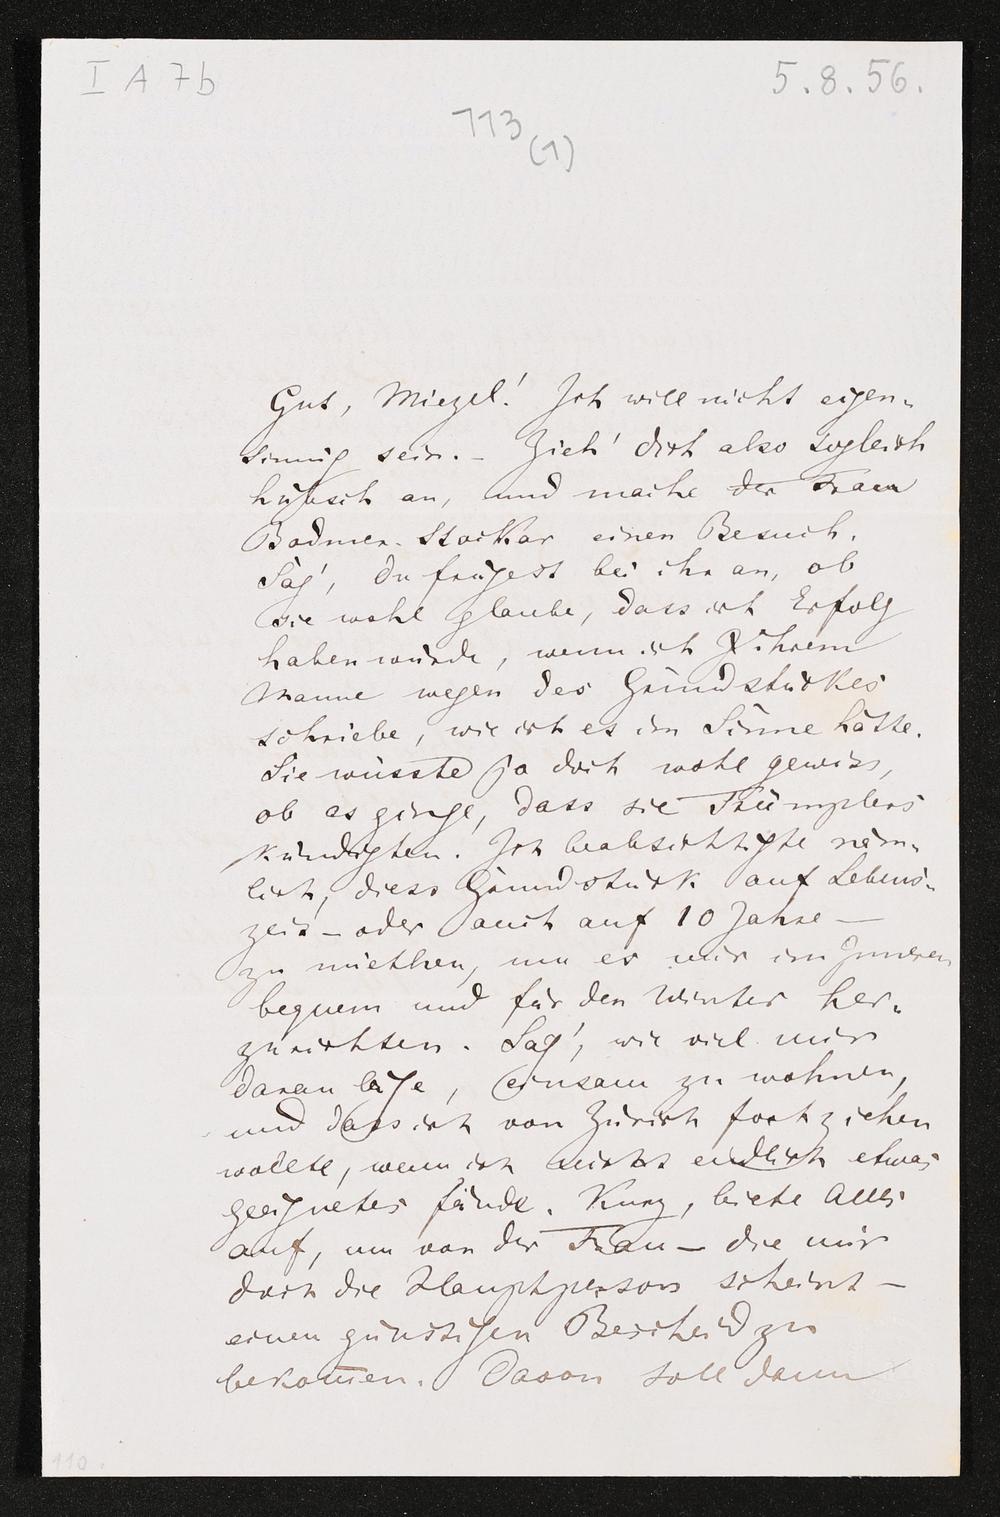 I A 7b
5.8.56.
113
(1)
Gut, Miezel! Ich will nicht eigen-
sinnig sein. – Zieh' dich also sogleich
hübsch an, und mache der Frau
Bodmer-Stockar einen Besuch.
Sag', du frügest bei ihr an, ob
sie wohl glaube, dass ich Erfolg
haben würde, wenn ich ihrem
Manne wegen des Grundstückes
schriebe, wie ich es im Sinne hätte.
Sie wüsste ja doch wohl gewiss,
ob es ginge, dass sie Trümplers
kündigten. Ich beabsichtigte näm-
lich, diess Grundstück auf Lebens-
zeit – oder auch auf 10 Jahre –
zu miethen, um es mir im Inneren
bequem und für den Winter her-
zurichten. Sag', wie viel mir
daran läge, einsam zu wohnen,
und dass ich von Zürich fortziehen
wollte, wenn ich nicht endlich etwas
geeignetes fände. Kurz, biete Alles
auf, um von der Frau – die mir
doch die Hauptperson scheint –
einen günstigen Bescheid zu
bekommen. Davon soll dann
110.